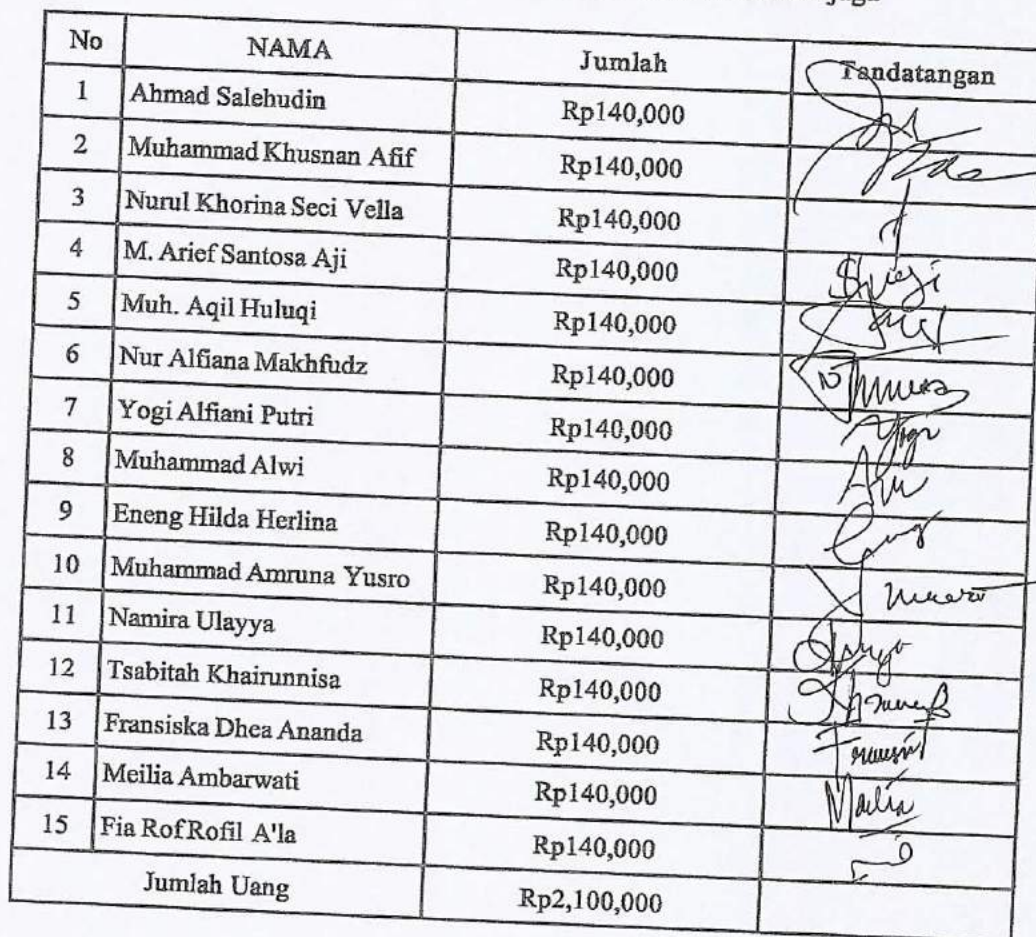 No NAMA Jumlah Tandatangan
1 Ahmad Salehudin Rp140,000
2 Muhammad Khusnan Afif Rp140,000
3 Nurul Khorina Seci Vella Rp140,000
4 M. Arief Santosa Aji Rp140,000
5 Muh. Aqil Huluqi Rp140,000
6 Nur Alfiana Makhfudz Rp140,000
7 Yogi Alfiani Putri Rp140,000 Yogi
8 Muhammad Alwi Rp140,000
9 Eneng Hilda Herlina Rp140,000
10 Muhammad Amruna Yusro Rp140,000
11 Namira Ulayya Rp140,000
12 Tsabitah Khairunnisa Rp140,000
13 Fransiska Dhea Ananda Rp140,000
14 Meilia Ambarwati Rp140,000
15 Fia RofRofil A'la Rp140,000
Jumlah Uang Rp2,100,000